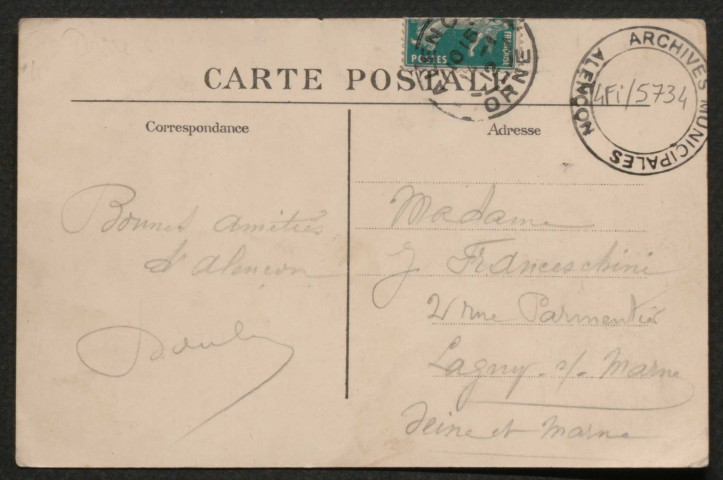 CARTE POSTALE
POSTES
ALENÇON
10 15
ORNE
ARCHIVES MUNICIPALES
ALENÇON
4Fi/5734
Correspondance
Adresse
Bonnes amitiés
d'alençon
Madame
J Franceschini
2 rue Parmentier
Lagny s/ Marne
Seine et Marne